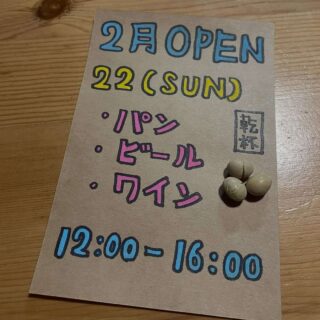 2月 OPEN
22(SUN)
・パン
・ビール
・ワイン
乾杯
12:00-16:00